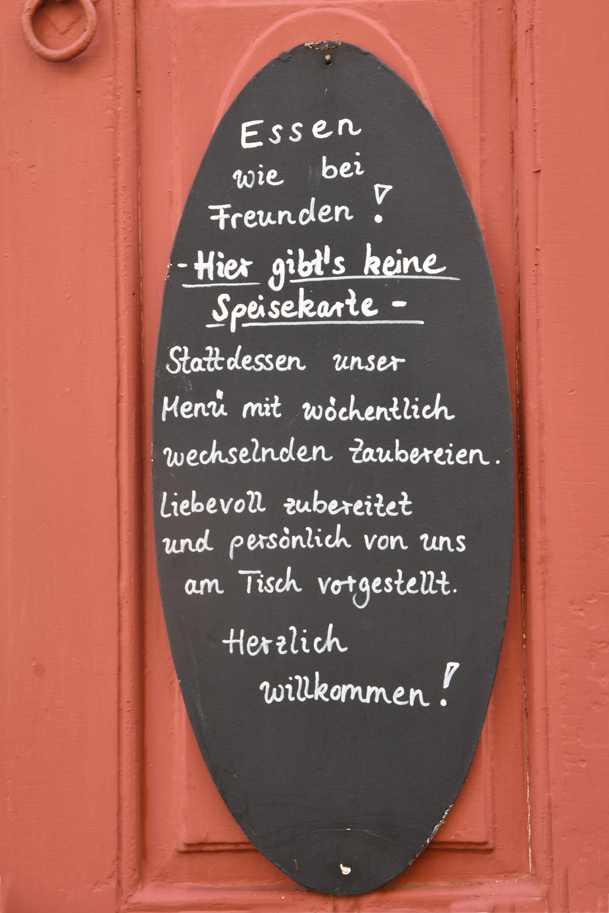 Essen
wie bei
Freunden !
- Hier gibt's keine
Speisekarte -
Stattdessen unser
Menü mit wöchentlich
wechselnden Zaubereien.
Liebevoll zubereitet
und persönlich von uns
am Tisch vorgestellt.
Herzlich
willkommen !